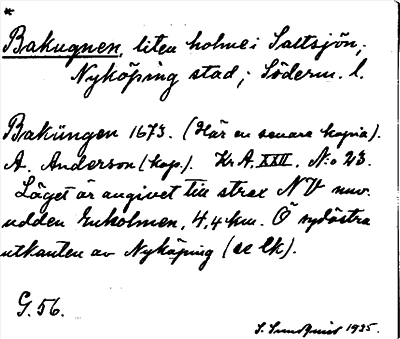 *
Bakugnen, liten holme i Saltsjön,
Nyköping stad, Söderm. l.
Bakūngen 1673. (Här en senare kopia).
A. Anderson (kop.). Kr A, XXII, N:o 23.
Läget är angivet till strax NV nuv.
udden Enholmen, 4,4 km. Ö sydöstra
utkanten av Nyköping (se Ek).
G. 56.
S. Sundquist 1935.